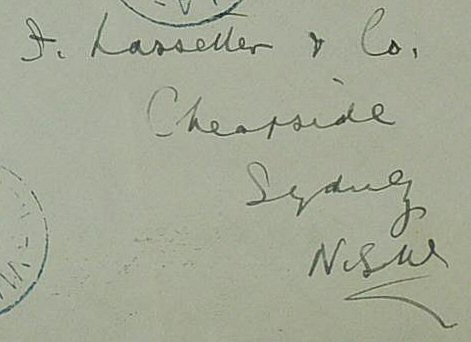 F. Lassetter & Co.
Cheapside
Sydney
N.S.W